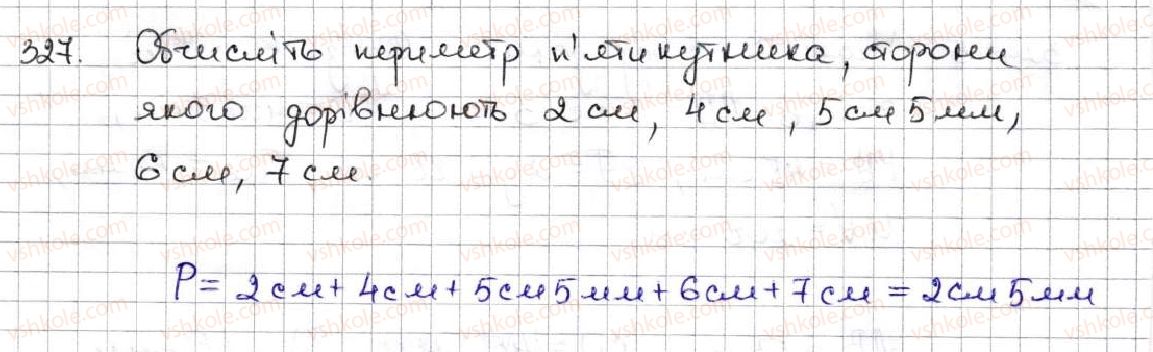 327. Обчисліть периметр п'ятикутника, сторони
якого дорівнюють 2 см, 4 см, 5 см 5 мм,
6 см, 7 см.
P = 2 см + 4 см + 5 см 5 мм + 6 см + 7 см = 2 см 5 мм